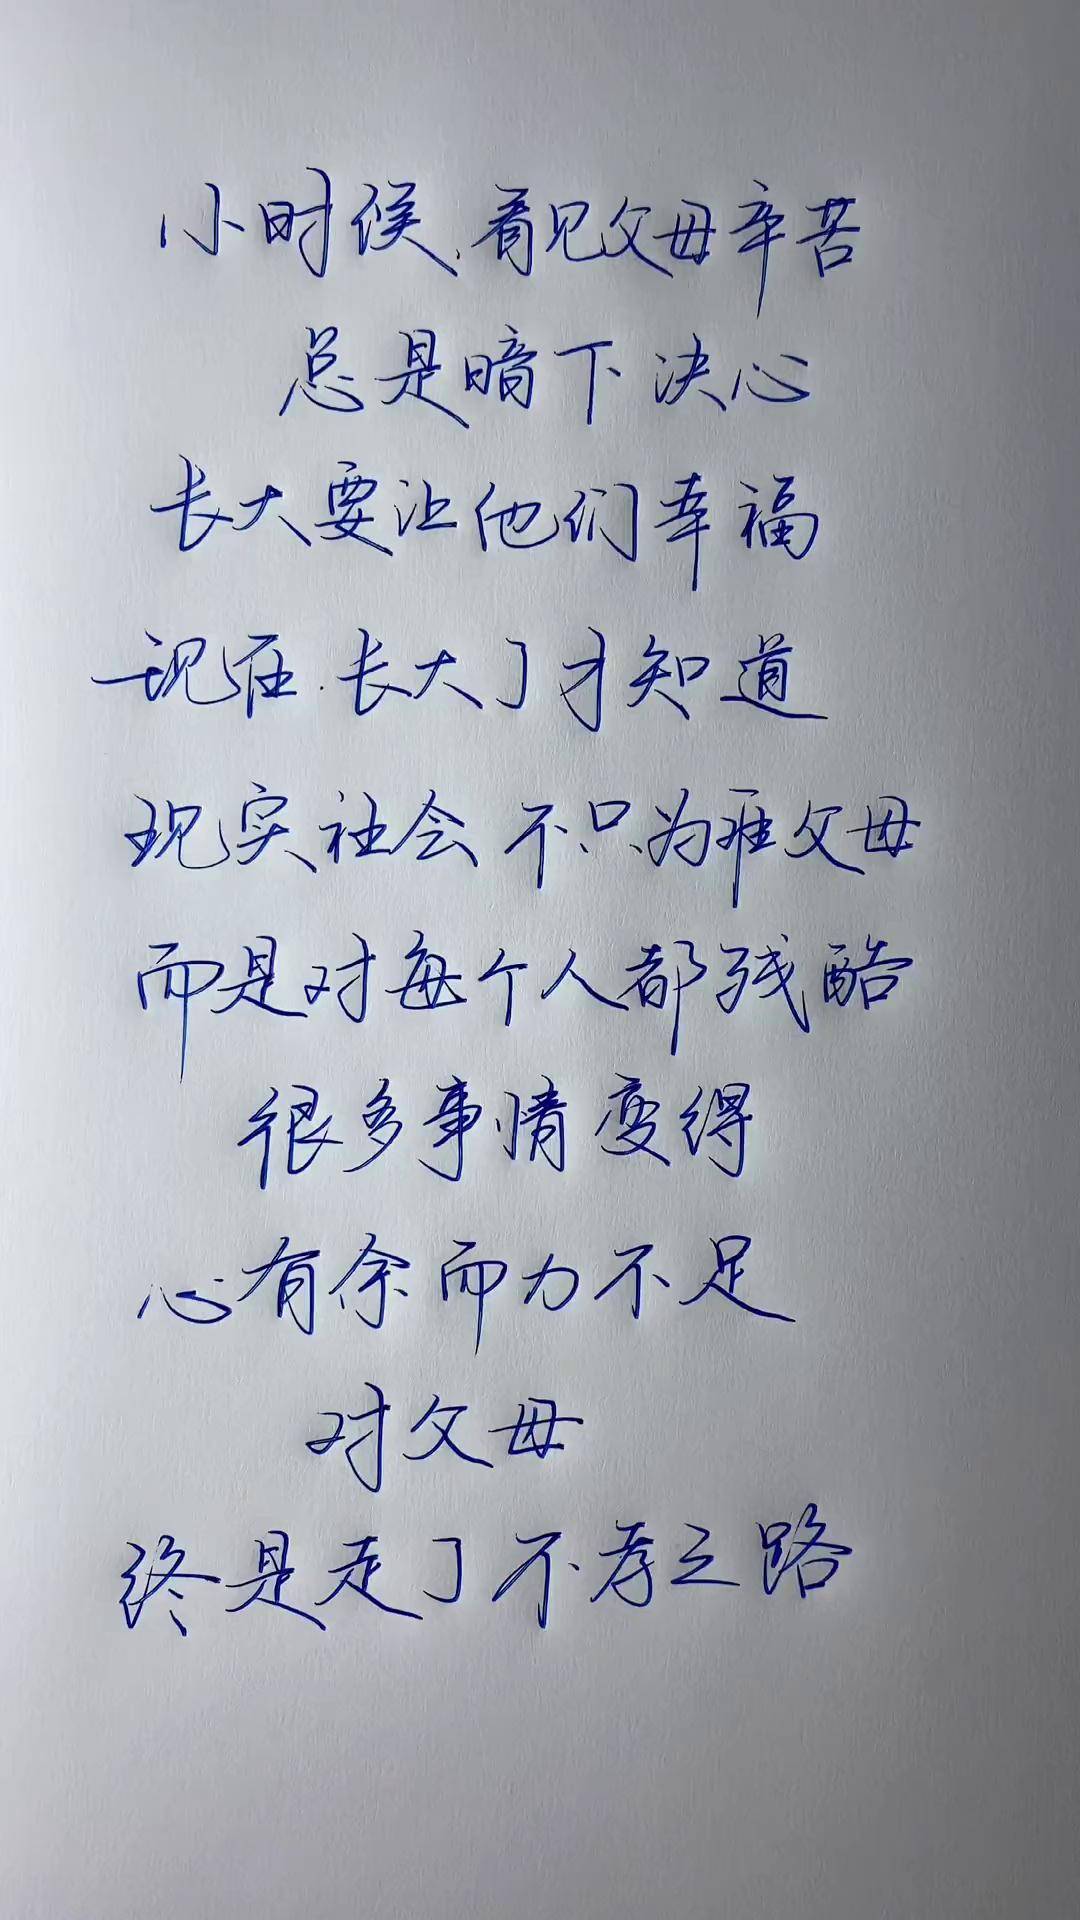 小时候.看见父母辛苦
总是暗下决心
长大要让他们幸福
现在.长大了才知道
现实社会不只为难父母
而是对每个人都残酷
很多事情变得
心有余而力不足
对父母
终是走了不孝之路